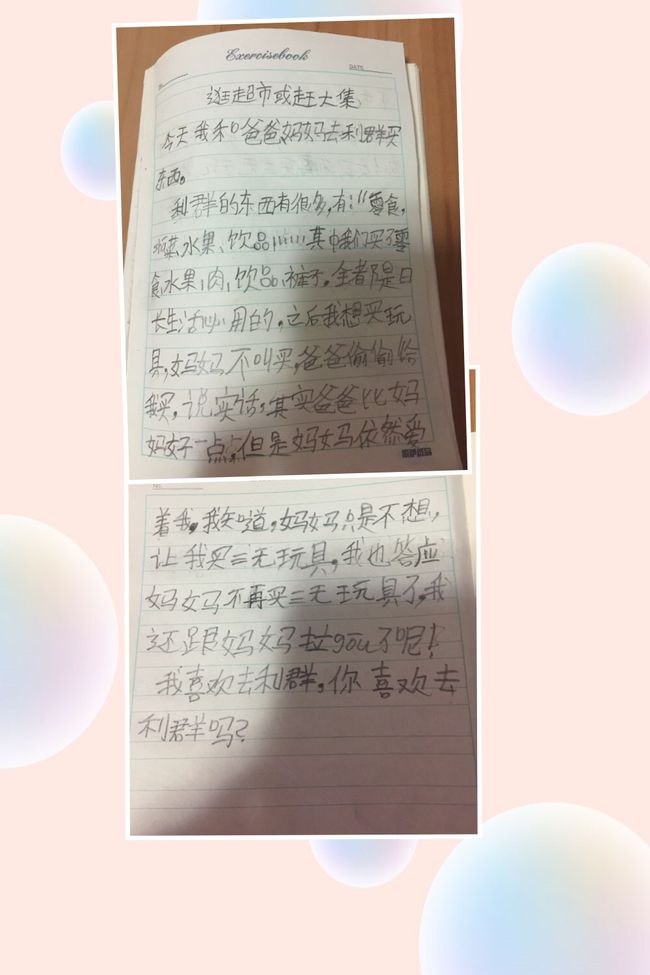 Exercisebook
DATE
逛超市或赶大集
今天我和爸爸、妈妈去利群买
东西。
利群的东西有很多,有:“零食,
蔬菜、水果、饮品……其中我们买了零
食,水果,肉,饮品、裤子,全都是日
长生活必用的,之后我想买玩
具,妈妈不叫买,爸爸偷偷给
我买,说实话,其实爸爸比妈
妈好一点,但是妈妈依然爱
着我,我知道,妈妈只是不想,
让我买三无玩具,我也答应
妈妈不再买三无玩具了,我
还跟妈妈拉gōu了呢!
我喜欢去利群,你喜欢去
利群吗?